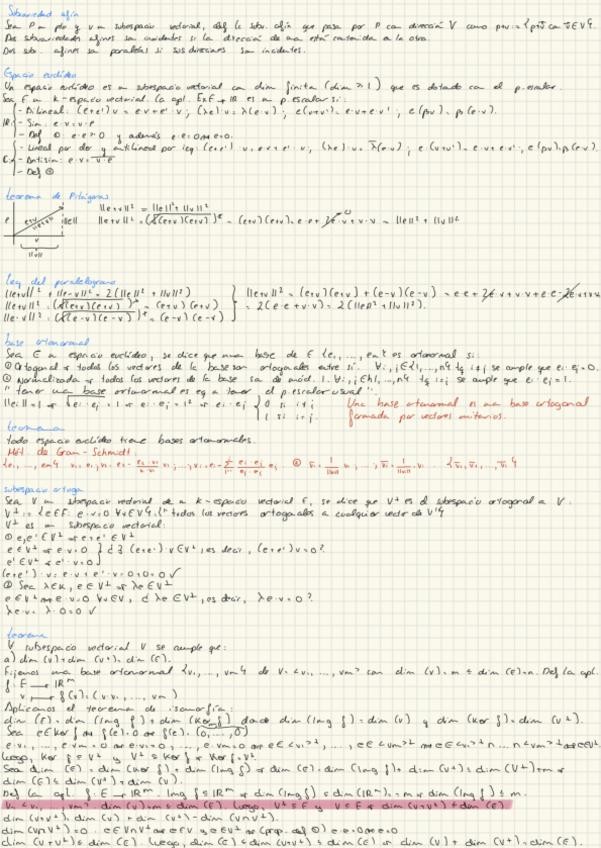 Subvariedad afín
Sea P un pto y V un subespacio vectorial, def la subv. afín que pasa por P con dirección V como p+v = {p+v̄ con v̄ ∈ V}.
Dos subvariedades afines son incidentes si la dirección de una está contenida a la otra.
Dos subv. afines son paralelas si sus direcciones son incidentes.
Espacio euclídeo
Un espacio euclídeo es un subespacio vectorial con dim finita (dim ≥ 1) que es dotado con el p. escalar.
Sea E un k-espacio vectorial. La apl. ExE → IR es un p. escalar si:
- Bilineal: (e+e')·v = e·v + e'·v ; (λe)·v = λ(e·v) ; e(v+v') = e·v + e·v' ; e(βv) = β(e·v).
IR: - Sim: e·v = v·e
- Def ⊕: e·e ≥ 0 y además e·e = 0 ⇔ e = 0.
- Lineal por der y antilineal por izq: (e+e')·v = e·v + e'·v ; (λe)·v = λ̄(e·v) ; e(v+v') = e·v + e·v' ; e(βv) = β(e·v).
C: - Antisim: e·v = v·e
- Def ⊕
teorema de Pitágoras
||e+v||² = ||e||² + ||v||²
||e+v||² = (√(e+v)(e+v))² = (e+v)(e+v) = e·e + 2e·v + v·v = ||e||² + ||v||²
e
e+v
||e||
v
||v||
Ley del paralelogramo
||e+v||² + ||e-v||² = 2(||e||² + ||v||²)
||e+v||² = (√(e+v)(e+v))² = (e+v)(e+v)
||e-v||² = (√(e-v)(e-v))² = (e-v)(e-v)
||e+v||² = (e+v)(e+v) + (e-v)(e-v) = e·e + 2e·v + v·v + e·e - 2e·v + v·v
= 2(e·e + v·v) = 2(||e||² + ||v||²).
base ortonormal
Sea E un espacio euclídeo, se dice que una base de E {e₁, ..., eₙ} es ortonormal si:
① Ortogonal ⇒ todos los vectores de la base son ortogonales entre si. ∀i, j ∈ {1, ..., n} tq i ≠ j se cumple que ei·ej = 0.
② Normalizada ⇒ todos los vectores de la base son de mód. 1. ∀i, j ∈ {1, ..., n} tq i = j se cumple que ei·ej = 1.
"tener una base ortonormal es eq a tener el p. escalar usual":
||ei|| = 1 ⇒ √ei·ei = 1 ⇒ ei·ei = 1² ⇒ ei·ej { 0 si i ≠ j
1 si i = j
Una base ortonormal es una base ortogonal
formada por vectores unitarios.
teorema
todo espacio euclídeo tiene bases ortonormales.
Mét. de Gram-Schmidt:
subespacio ortogo.
Sea V un subespacio vectorial de un k-espacio vectorial E, se dice que V⊥ es el subespacio ortogonal a V.
V⊥ := {e ∈ E: e·v = 0 ∀v ∈ V} = {"todos los vectores ortogonales a cualquier vector de V"}
V⊥ es un subespacio vectorial:
① e, e' ∈ V⊥ ⇒ e+e' ∈ V⊥
e ∈ V⊥ ⇒ e·v = 0
e' ∈ V⊥ ⇒ e'·v = 0
¿(e+e')·v ∈ V⊥, es decir, (e+e')·v = 0?
(e+e')·v = e·v + e'·v = 0+0 = 0 ✓
② Sea λ ∈ K, e ∈ V⊥ ⇒ λe ∈ V⊥
e ∈ V⊥ ⇔ e·v = 0 ∀v ∈ V, ¿λe ∈ V⊥, es decir, λe·v = 0?
λe·v = λ·0 = 0 ✓
teorema
V subespacio vectorial V se cumple que:
a) dim (V) + dim (V⊥) = dim (E).
Fijemos una base ortonormal {v₁, ..., vm} de V = <v₁, ..., vm> con dim (V) = m ≤ dim (E) = n. Def la apl.
f: E → IRᵐ
v → f(v) = (v·v₁, ..., vm)
Aplicamos el teorema de isomorfía:
dim (E) = dim (Img f) + dim (Ker f) donde dim (Img f) = dim (V) y dim (Ker f) = dim (V⊥).
Sea e ∈ Ker f ⇔ f(e) = 0 ⇔ f(e) = (0, ..., 0)
e·v₁, ..., e·vm = 0 ⇔ e·v₁ = 0, ..., e·vm = 0 ⇔ e ∈ <v₁>⊥, ..., e ∈ <vm>⊥ ⇔ e ∈ <v₁>⊥ ∩ ... ∩ <vm>⊥ ⇔ e ∈ V⊥.
Luego, Ker f ⊆ V⊥ y V⊥ ⊆ Ker f ⇒ Ker f = V⊥.
Sea dim (E) = dim (Ker f) + dim (Img f) ⇒ dim (E) = dim (Img f) + dim (V⊥) ≤ dim (V⊥) + m ⇒
dim (E) ≤ dim (V⊥) + dim (V).
Def la apl. f: E → IRᵐ. Img f ⊆ IRᵐ ⇒ dim (Img f) ≤ dim (IRᵐ) = m ⇒ dim (Img f) ≤ m.
V = <v₁, ..., vm> dim (V) = m ≤ dim (E). Luego, V⊥ ⊆ E y V ⊆ E ⇒ dim (V+V⊥) ≤ dim (E)
dim (V+V⊥) = dim (V) + dim (V⊥) - dim (V∩V⊥).
dim (V∩V⊥) = 0. e ∈ V∩V⊥ ⇔ e ∈ V y e ∈ V⊥ ⇒ (prop. def ⊕) e·e = 0 ⇔ e = 0.